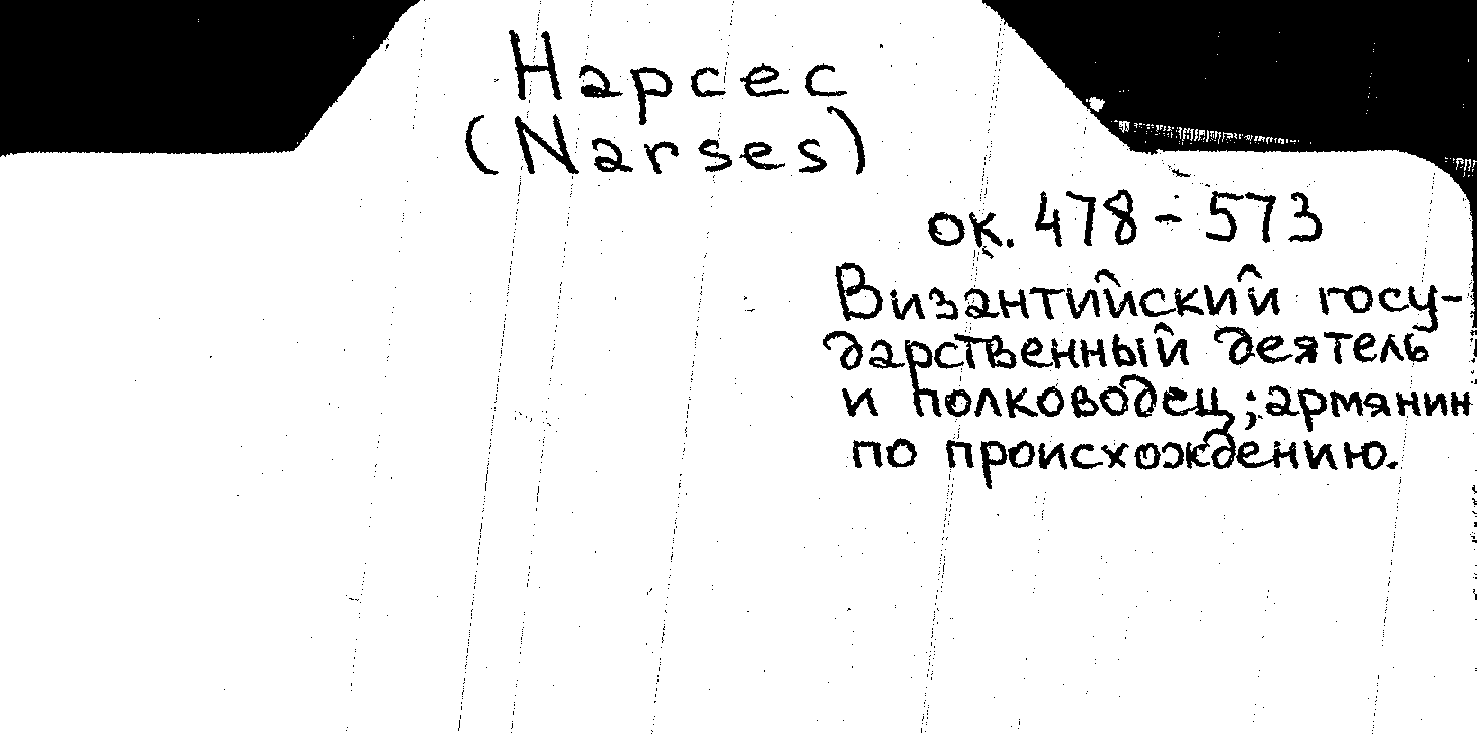 Нарсес
(Narses)
ок. 478 - 573
Византийский госу-
дарственный деятель
и полководец; армянин
по происхождению.